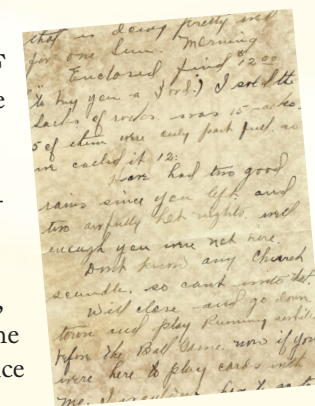 that is doing pretty well
for one Sun. Morning
Enclosed find $12.00
"to buy you a Ford.) I sold the
sacks of rocks was 15 sacks.
5 of them were only part full, so
we called it 12.
Have had two good
rains since you left and
two awfully hot nights. well
enough you were not here.
Dont know any Church
scandle, so cant write that.
Will close and go down
town and play Rummy awhile
before the Ball Game now if you
were here to play cards with
me. I
F
e
-
,
ne
ce